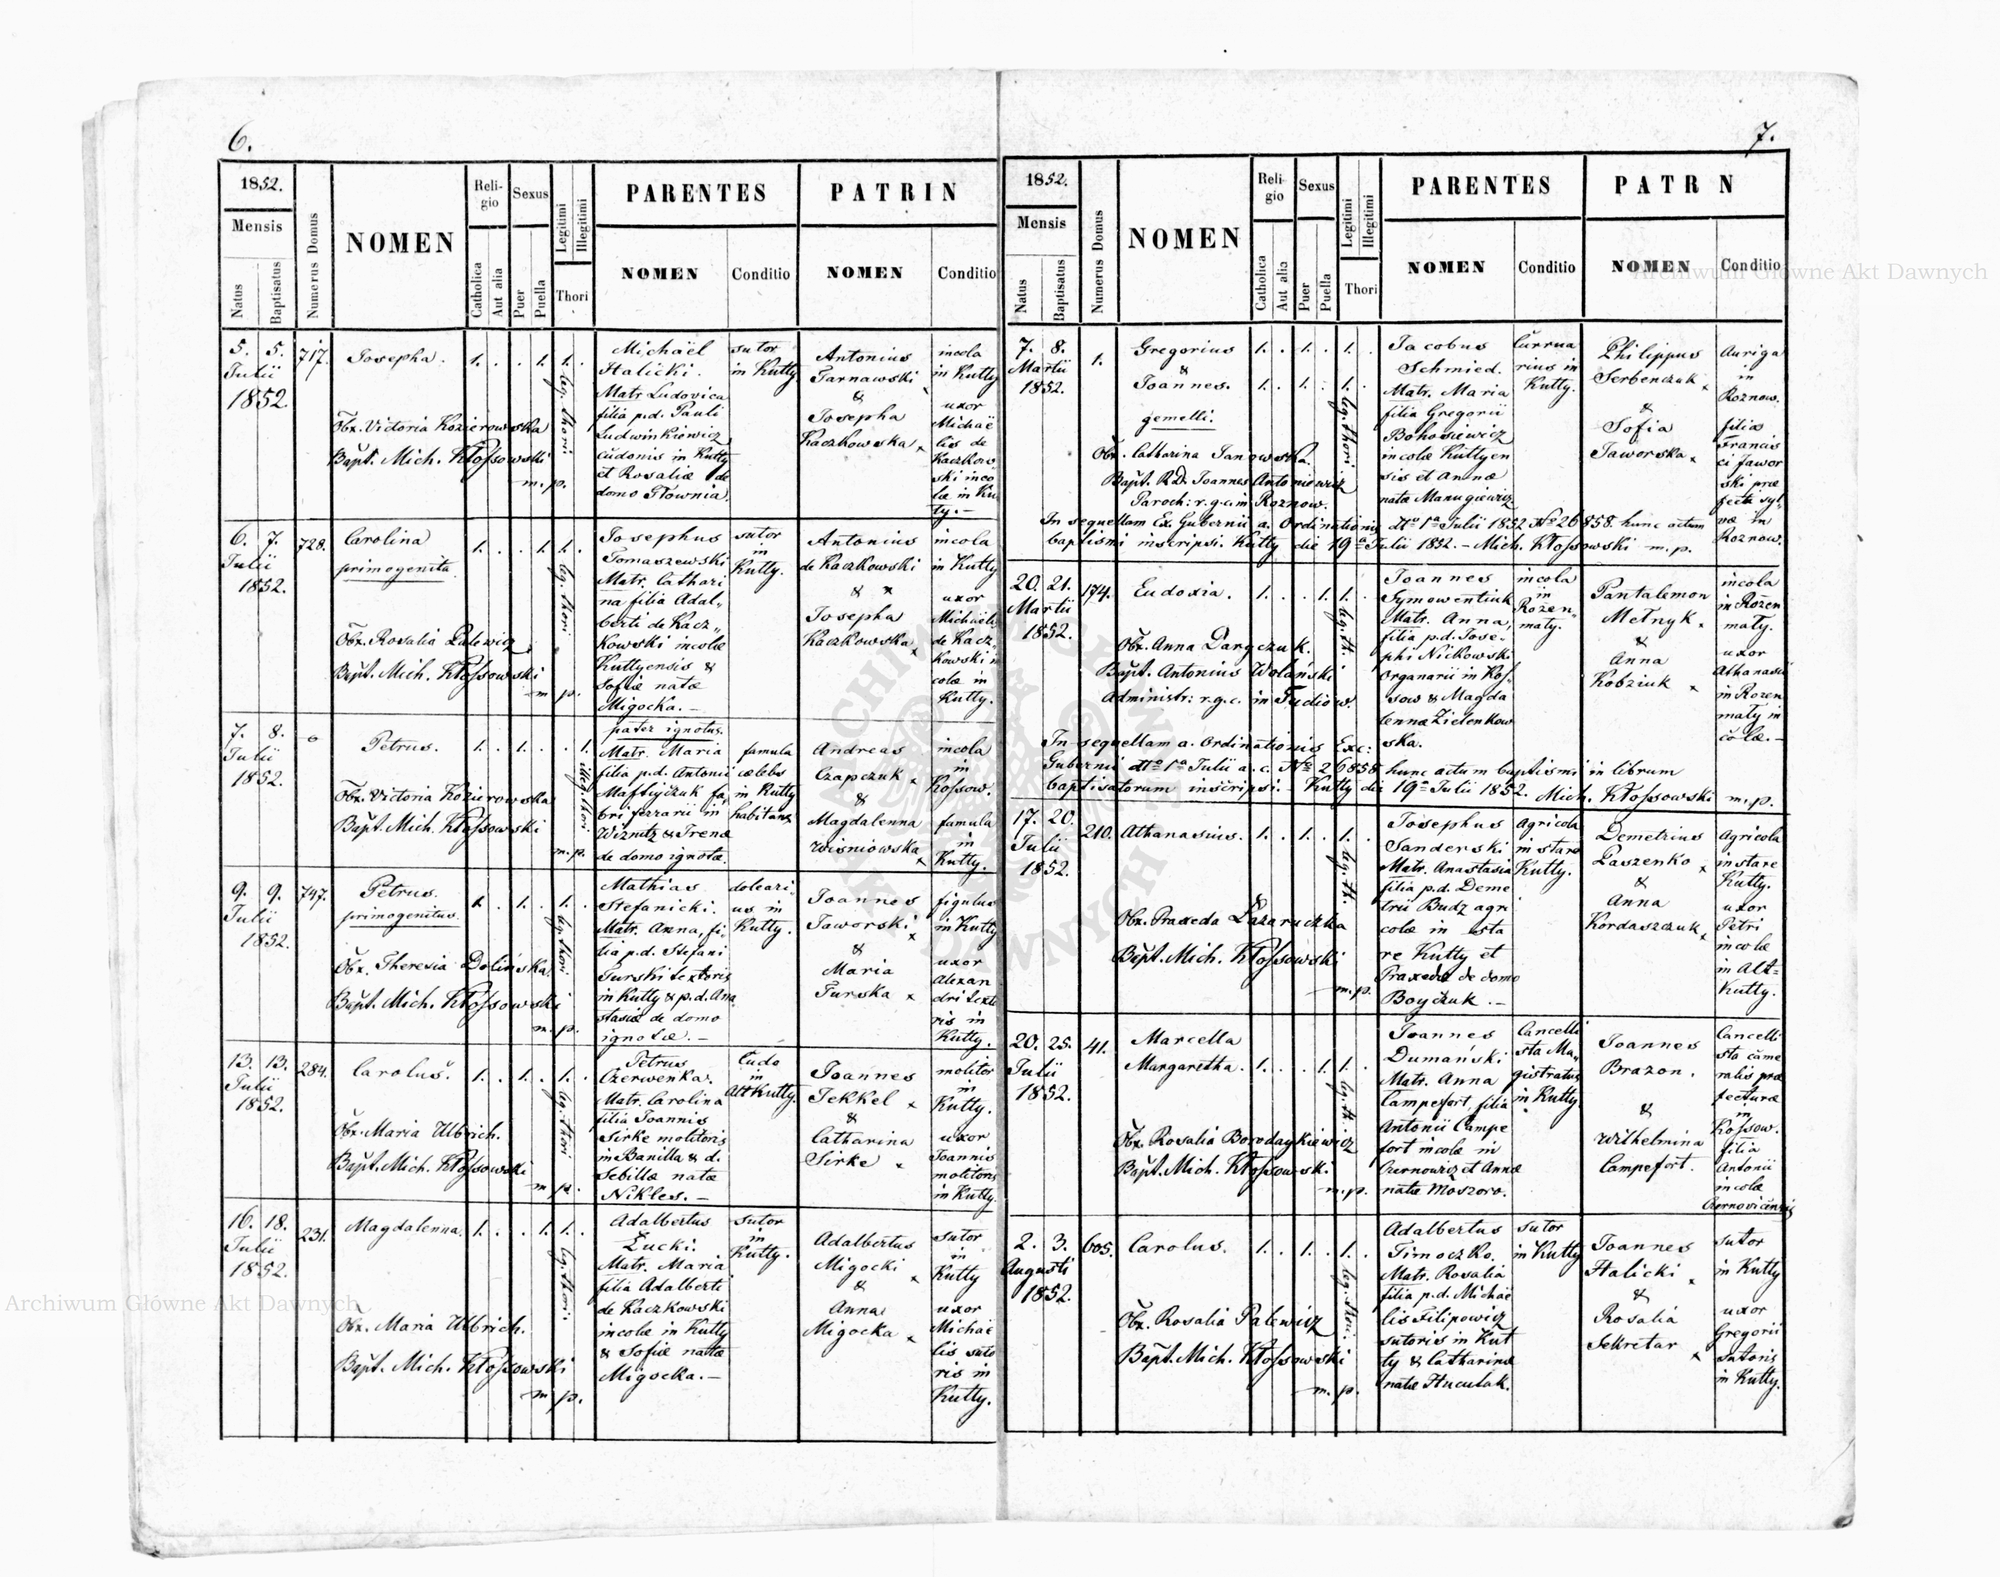 6.
1852.
Mensis
Natus
Baptisatus
Numerus Domus
NOMEN
Religio
Catholica
Aut alia
Sexus
Puer
Puella
Legitimi
Illegitimi
Thori
PARENTES
NOMEN
Conditio
PATRIN
NOMEN
Conditio
5. 5.
Julii
1852.
717.
Josepha.
1. . . 1. 1. .
leg. thori
Obx. Victoria Kozierowska
Bapt. Mich. Kłossowski
m. p.
Michaël
Halicki.
Matr. Ludovica
filia p.d. Pauli
Ludwinkiewicz
cudonis in Kutty
et Rosaliæ de
domo Głownia.
sutor
in Kutty.
Antonius
Tarnawski x
&
Josepha
Kaczkowska x
incola
in Kutty
uxor
Michaë
lis de
Kaczkow
ski inco
læ in Ku
ty. –
6. 7.
Julii
1852.
728.
Carolina
primogenita.
1. . . 1. 1. .
leg. thori
Obx. Rosalia Palewicz.
Bapt. Mich. Kłossowski
m. p.
Josephus
Tomaszewski
Matr. Cathari
na filia Adal„
berti de Kacz„
Kowski incolæ
Kuttyensis &
Sofiæ natæ
Migocka. –
sutor
in
Kutty.
Antonius
de Kaczkowski
& x
Josepha
Kaczkowska x
incola
in Kutty
uxor
Michaelis
de Kacz„
Kowski in
colæ in
Kutty.
7. 8.
Julii
1852.
o
Petrus.
1. . 1. . . 1.
illeg. thori
Obx. Victoria Kozierowska
Bapt. Mich. Kłossowski
m. p.
pater ignotus.
Matr. Maria
filia p.d. Antonii
Maftyjczuk fa„
bri ferrarii in
Wiznitz & Irenæ
de domo ignotæ.
famula
cælebs
in Kutty
habitans
Andreas
Czapczuk x
&
Magdalenna
Wisniowska x
incola
in
Kossow.
famula
in
Kutty.
9. 9.
Julii
1852.
747.
Petrus.
primogenitus.
1. . 1. . 1. .
leg. thori
Obx. Theresia Dolińska.
Bapt. Mich. Kłossowski
m. p.
Mathias
Stefanicki.
Matr. Anna, fi„
lia p.d. Stefani
Turski textoris
in Kutty & p.d. Ana
stasiæ de domo
ignotæ. –
doleari„
us in
Kutty.
Joannes
Jaworski x
&
Maria
Turska x
figulus
in Kutty
uxor
Alexan
dri texto
ris in
Kutty.
13. 13.
Julii
1852.
284.
Carolus.
1. . 1. . 1. .
leg. thori
Obx. Maria Ulbrich.
Bapt. Mich. Kłossowski
m. p.
Petrus
Czerwenka.
Matr. Carolina
filia Joannis
Sirke molitoris
in Banilla & d.
Sebillæ natæ
Nikles. –
Cudo
in
Alt Kutty.
Joannes
Jekkel x
&
Catharina
Sirke x
molitor
in
Kutty.
uxor
Joannis
molitoris
in Kutty.
16. 18.
Julii
1852.
231.
Magdalenna.
1. . . 1. 1. .
leg. thori
Obx. Maria Ulbrich.
Bapt. Mich. Kłossowski
m. p.
Adalbertus
Łucki.
Matr. Maria
filia Adalberti
de Kaczkowski
incolæ in Kutty
& Sofiæ natæ
Migocka. –
sutor
in
Kutty.
Adalbertus
Migocki x
&
Anna
Migocka x
sutor
in
Kutty
uxor
Michaë
lis suto
ris in
Kutty.
7.
1852.
Mensis
Natus
Baptisatus
Numerus Domus
NOMEN
Religio
Catholica
Aut alia
Sexus
Puer
Puella
Legitimi
Illegitimi
Thori
PARENTES
NOMEN
Conditio
PATR N
NOMEN
Conditio
7. 8.
Martii
1852.
1.
Gregorius
&
Joannes.
gemelli.
1. . 1. . 1. .
1. . 1. . 1.
leg. thori
Obx. Catharina Janowska.
Bapt. R.D. Joannes Antoniewicz
Paroch: r.g.c. in Roznow.
Jacobus
Schmied.
Matr. Maria
filia Gregorii
Bohosiewicz
incolæ Kuttyen
sis et Annæ
natæ Manugiewicz
Currua
rius in
Kutty.
Philippus
Serbenczuk x
&
Sofia
Jaworska x
Auriga
in
Roznow.
filia
Francis
ci Jawor
ski præ
fecti syl
væ in
Roznow.
In sequellam Ex. Gubernii a. Ordinationis dtto 1a Julii 1852 No 26858 hunc actum
baptismi inscripsi. Kutty die 19a Julii 1852. – Mich. Kłossowski m.p.
20. 21.
Martii
1852.
174.
Eudoxia.
1. . . 1. 1.
leg. th.
Obx. Anna Dargczuk.
Bapt. Antonius Wolański
Administr: r.g.c. in Tudiow.
Joannes
Symowentiuk
Matr. Anna,
filia p.d. Jose„
phi Nickowski
Organarii in Kos„
sow & Magda
lennæ Zielenkow
ska.
incola
in
Rożen„
maty.
Pantalemon
Melnyk x
&
Anna
Kobziuk x
incola
in Rożen
maty.
uxor
Athanasii
in Rozen
maty in
colæ. –
In sequellam a. Ordinationis Exc:
Gubernii dtto 1a Julii a. c. No 26858 hunc actum baptismi in librum
baptisatorum inscripsi. – Kutty die 19a Julii 1852. Mich. Kłossowski m.p.
17. 20.
Julii
1852.
210.
Athanasius.
1. . 1. . 1. .
leg. th.
Obx. Praxeda Łazaruczka
Bapt. Mich. Kłossowski
m.p.
Josephus
Sanderski
Matr. Anastasia
filia p.d. Deme
trii Budz agri
colæ in sta
re Kutty et
Praxedæ de domo
Boyczuk. –
Agricola
in stare
Kutty.
Demetrius
Łaszenko x
&
Anna
Kordaszczuk x
Agricola
in stare
Kutty.
uxor
Petri
incolæ
in Alt=
Kutty.
20. 25.
Julii
1852.
41.
Marcella
Margaretha.
1. . . 1. 1.
leg. th.
Obx. Rosalia Borodaykiewicz
Bapt. Mich. Kłossowski
m.p.
Joannes
Dumański.
Matr. Anna
Campefort, filia
Antonii Campe
fort incolæ in
Czernowicz et Annæ
natæ Moszoro.
Cancelli
sta Ma„
gistratus
in Kutty.
Joannes
Brazon.
&
Wilhelmina
Campefort.
Cancelli
sta came
ralis præ
fecturæ
in
Kossow.
filia
Antonii
incolæ
Czernovicensis
2. 3.
Augusti
1852.
605.
Carolus.
1. . 1. . 1. .
leg. thori
Obx. Rosalia Palewicz
Bapt. Mich. Kłossowski
m. p.
Adalbertus
Timoczko.
Matr. Rosalia
filia p.d. Michaë
lis Filipowicz
sutoris in Kut
ty & Catharinæ
natæ Huculak.
sutor
in Kutty
Joannes
Halicki x
&
Rosalia
Sekretar x
sutor
in Kutty
uxor
Gregorii
sutoris
in Kutty.
Archiwum Główne Akt Dawnych
Archiwum Główne Akt Dawnych